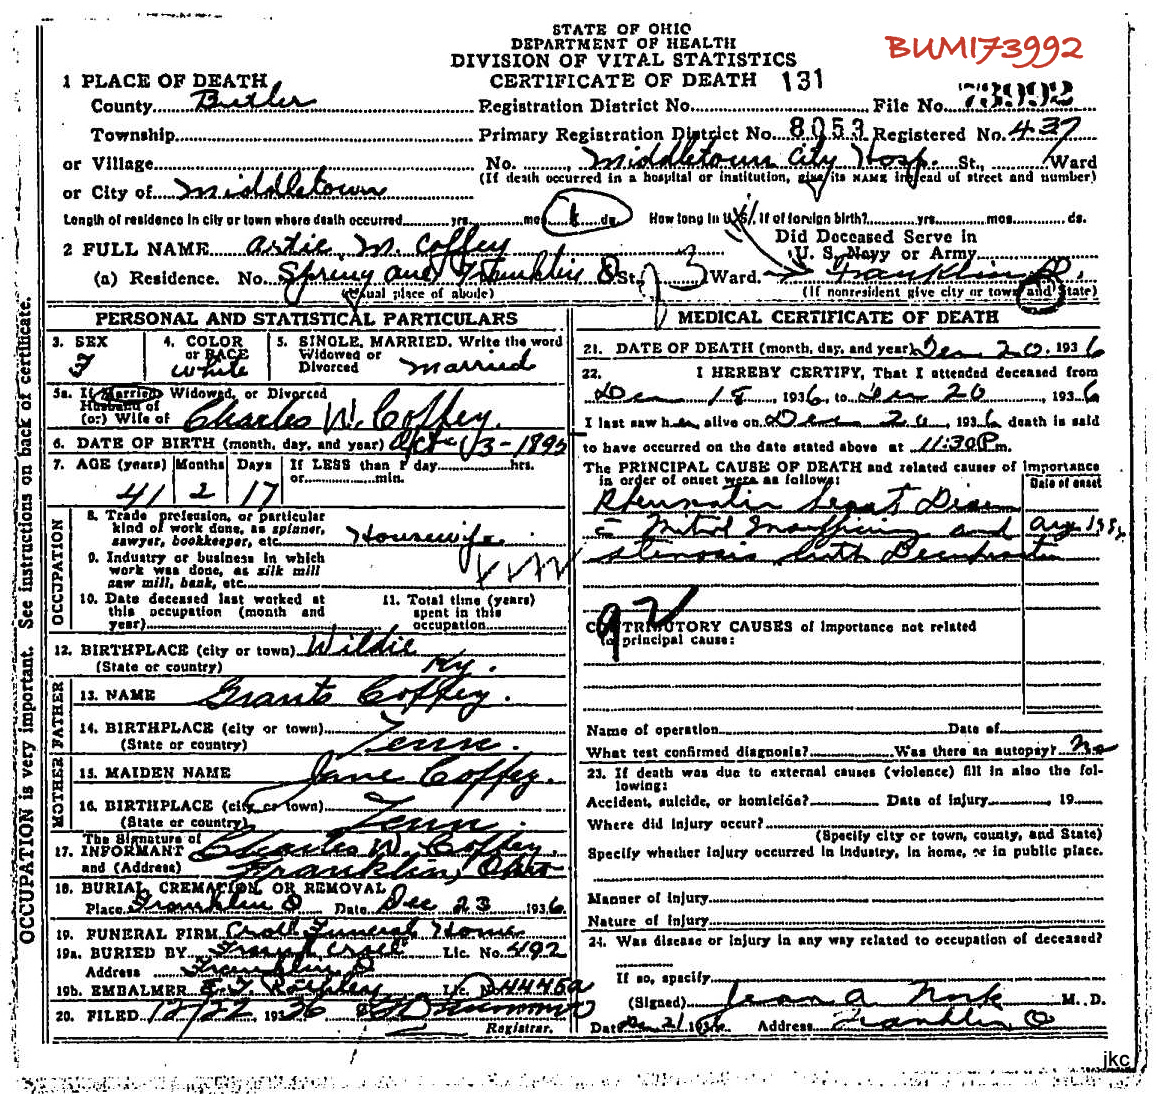 STATE OF OHIO
DEPARTMENT OF HEALTH
DIVISION OF VITAL STATISTICS
CERTIFICATE OF DEATH 131
BUM173992
1 PLACE OF DEATH
County Butler Registration District No. File No. 73992
Township Primary Registration District No. 8053 Registered No. 437
or Village No. Middletown City Hosp. St., Ward
or City of Middletown (If death occurred in a hospital or institution, give its NAME instead of street and number)
Length of residence in city or town where death occurred yrs. mos. ds. How long in U.S. if of foreign birth? yrs. mos. ds.
2 FULL NAME Artie M. Coffey Did Deceased Serve in
U. S. Navy or Army
(a) Residence. No. Spring and St., Ward. Franklin O.
(Usual place of abode) (If nonresident give city or town and State)
PERSONAL AND STATISTICAL PARTICULARS
3. SEX F
4. COLOR or RACE White
5. SINGLE, MARRIED, Write the word
Widowed or
Divorced Married
5a. If Married, Widowed, or Divorced
Husband of
(or) Wife of Charles W. Coffey.
6. DATE OF BIRTH (month, day, and year) Oct 3-1895
7. AGE (years) Months Days If LESS than 1 day hrs.
or min.
41 2 17
OCCUPATION
8. Trade, profession, or particular
kind of work done, as spinner,
sawyer, bookkeeper, etc. Housewife
9. Industry or business in which
work was done, as silk mill
saw mill, bank, etc.
10. Date deceased last worked at
this occupation (month and
year)
11. Total time (years)
spent in this
occupation
12. BIRTHPLACE (city or town) Wildie
(State or country) Ky.
FATHER
13. NAME Grants Coffey.
14. BIRTHPLACE (city or town)
(State or country) Tenn.
MOTHER
15. MAIDEN NAME Jane Coffey.
16. BIRTHPLACE (city or town)
(State or country) Tenn.
The Signature of
17. INFORMANT Charles W. Coffey.
and (Address) Franklin, Ohio
18. BURIAL, CREMATION, OR REMOVAL
Place Franklin O Date Dec 23 1936
19. FUNERAL FIRM Croll Funeral Home
19a. BURIED BY Frank Croll Lic. No. 492
Address Franklin O
19b. EMBALMER Lic. No. 4446a
20. FILED 12/22, 1936
Registrar.
MEDICAL CERTIFICATE OF DEATH
21. DATE OF DEATH (month, day, and year) Dec 20, 1936
22. I HEREBY CERTIFY, That I attended deceased from
Dec 18, 1936, to Dec 20, 1936
I last saw her alive on Dec 20, 1936 death is said
to have occurred on the date stated above at 11:30 P.m.
The PRINCIPAL CAUSE OF DEATH and related causes of importance
in order of onset were as follows: Date of onset
Rheumatic Heart Disease
c Mitral Insufficiency and Aug
stenosis, with
92
CONTRIBUTORY CAUSES of importance not related
to principal cause:
Name of operation Date of
What test confirmed diagnosis? Was there an autopsy? no
23. If death was due to external causes (violence) fill in also the fol-
lowing:
Accident, suicide, or homicide? Date of injury , 19
Where did injury occur?
(Specify city or town, county, and State)
Specify whether injury occurred in industry, in home, or in public place.
Manner of injury
Nature of injury
24. Was disease or injury in any way related to occupation of deceased?
If so, specify
(Signed) M. D.
Date Dec 21 1936 Address Franklin, O
OCCUPATION is very important. See instructions on back of certificate.
jkc